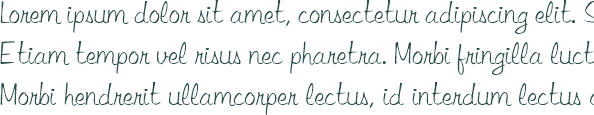 Lorem ipsum dolor sit amet, consectetur adipiscing elit. S
Etiam tempor vel risus nec pharetra. Morbi fringilla luct
Morbi hendrerit ullamcorper lectus, id interdum lectus